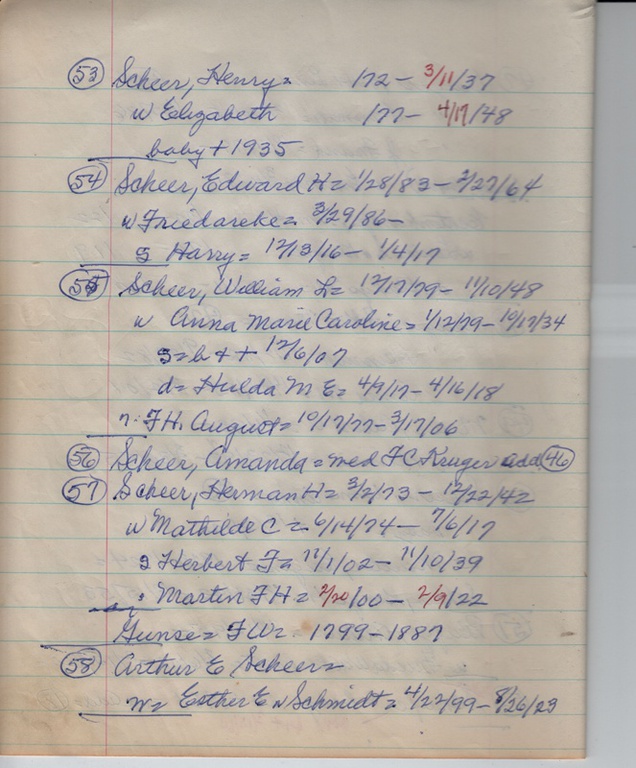 (53) Scheer, Henry = 1872 - 3/11/37
w Elizabeth 1877 - 4/17/48
baby + 1935
(54) Scheer, Edward H = 1/28/83 - 2/27/64
w Friedareke = 3/29/86 -
s Harry = 12/13/16 - 1/4/17
(55) Scheer, William L = 12/17/79 - 11/10/48
w Anna Marie Caroline = 1/12/79 - 10/17/34
s = b + + 12/6/07
d = Hulda M E = 4/9/17 - 4/16/18
F.H. August = 10/17/77 - 3/17/06
(56) Scheer, Amanda = med F C Kruger add (46)
(57) Scheer, Herman H = 3/2/73 - 12/22/42
w Mathilde C = 6/14/74 - 7/6/17
s Herbert F = 11/1/02 - 11/10/39
Martin F H = 2/20/00 - 2/9/22
Gunse = F W = 1799 - 1887
(58) Arthur E Scheer =
w = Esther E n Schmidt = 4/22/99 - 8/26/23